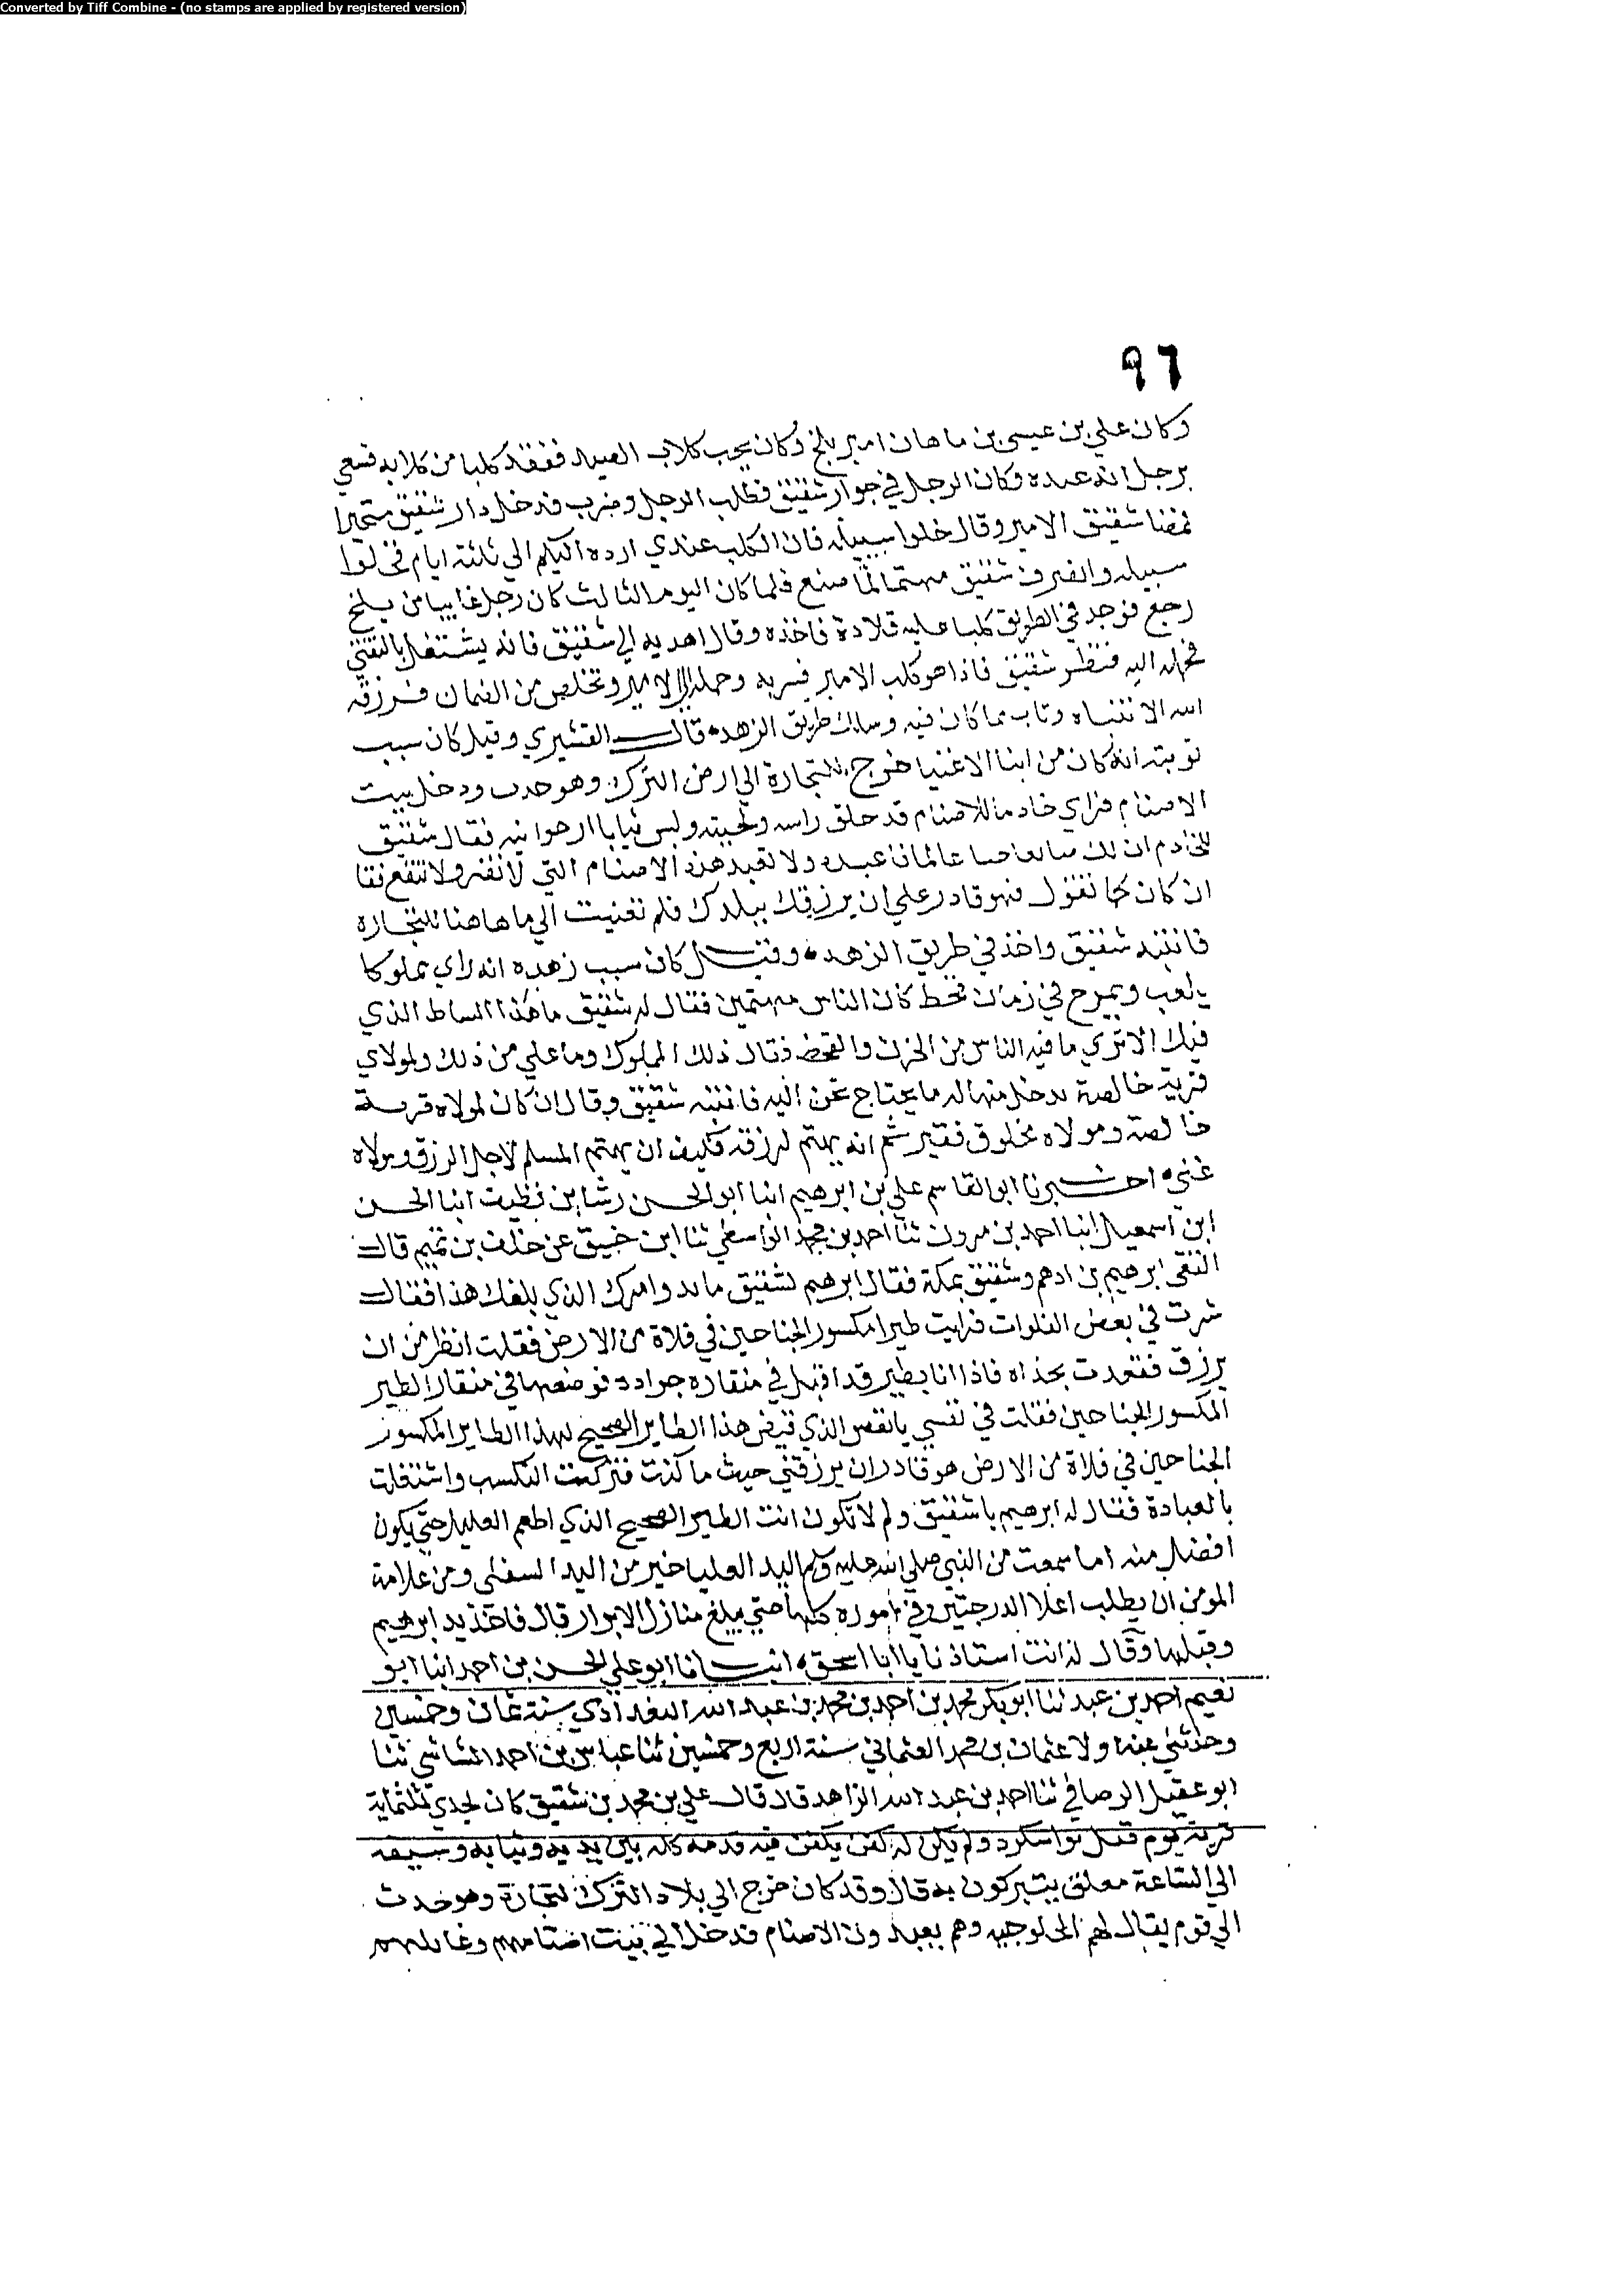 Converted by Tiff Combine - (no stamps are applied by registered version)
٩٦
وكان علي بن عيسى بن ماهان امير بلخ وكان يحب كلاب الصيد ففقد كلبا من كلابه فسعي
برجل انه عنده وكان الرجل في جوار شقيق فطلب الرجل وضرب فدخل دار شقيق مستجيرا
فمضا شقيق الامير وقال خلوا سبيله فان الكلب عندي ارده اليكم الي ثلثة ايام فخلوا
سبيله وانصرف شقيق مهتما لما صنع فلما كان اليوم الثالث كان رجل غايبا من بلخ
رجع فوجد في الطريق كلبا عليه قلادة فاخذه وقال اهديه الي شقيق فانه يشتغل بالتفتي
فحمله اليه فنظر شقيق فاذا هو كلب الامير فسر به وحمله الي الامير وتخلص من الضمان فرزقه
الله الانتباه وتاب مما كان فيه وسلك طريق الزهد قال القشيري وقيل كان سبب
توبته انه كان من ابنا الاغنيا خرج للتجارة الي ارض الترك وهو حدث ودخل بيت
الاصنام فراي خادما للاصنام قد حلق راسه ولحيته ولبس ثيابا ارجوانيه فقال شقيق
للخادم ان لك صانعا حيا عالما فاعبده ولا تعبد هذه الاصنام التي لا تضر ولا تنفع فقا
ان كان كما تقول فهو قادر علي ان يرزقك ببلدك فلم تعنيت الي ما هاهنا للتجاره
فانتبه شقيق واخذ في طريق الزهد وقيل كان سبب زهده انه راي مملوكا
يلعب ويمرح في زمان قحط كان الناس مهتمين فقال له شقيق ما هذا النساط الذي
فيك الا تري ما فيه الناس من الحزن والقحط فقال ذلك المملوك وما علي من ذلك ولمولاي
قرية خالصة يدخل منها له ما يحتاج نحن اليه فانتبه شقيق وقال ان كان لمولاه قرية
خالصة ومولاه مخلوق فقير ثم انه يهتم لرزقه فكيف ان يهتم المسلم لاجل الرزق ومولاه
غني اخبرنا ابو القاسم علي بن ابرهيم انبا ابو الحسن رشا بن نظيف انبا الحسن
ابن اسمعيل انبا احمد بن مرون ثنا احمد بن محمد الواسطي ثنا ابن خبيق عن خلف بن تميم قال
التقي ابرهيم بن ادهم وشقيق بمكة فقال ابرهيم لشقيق ما بدو امرك الذي بلغك هذا فقال
سرت في بعض الفلوات فرايت طيرا مكسور الجناحين في فلاة من الارض فقلت انظر من ان
يرزق فقعدت بحذاه فاذا انا بطير قد اقبل في منقاره جرادة فوضعها في منقار الطير
المكسور الجناحين فقلت في نفسي يا نفس الذي قيض هذا الطاير الصحيح لهذا الطاير المكسور
الجناحين في فلاة من الارض هو قادر ان يرزقني حيث ما كنت فتركت التكسب واشتغلت
بالعبادة فقال له ابرهيم يا شقيق ولم لا تكون انت الطير الصحيح الذي اطعم العليل حتي يكون
افضل منه اما سمعت من النبي صلي الله عليه وسلم اليد العليا خير من اليد السفلى ومن علامة
المومن ان يطلب اعلا الدرجتين في اموره كلها حتي يبلغ منازل الابرار قال فاخذ يد ابرهيم
وقبلها وقال له انت استاذنا يا ابا اسحق انبانا ابو علي الحسن بن احمد انبا ابو
نعيم احمد بن عبد ثنا ابو بكر محمد بن احمد بن محمد بن عبد الله البغدادي سنة ثمان وخمسين
وحدثني عنه اولا عثمان بن محمد العثماني سنة اربع وخمسين ثنا عباس بن احمد الشاشي ثنا
ابو عقيل الرصافي ثنا احمد بن عبد الله الزاهد قال قال علي بن محمد بن شقيق كان لجدي ثلثماية
قرية يوم قتل بواشكرد ولم يكن له كفن يكفن فيه قدمه كله بين يديه وثيابه وسيفه
الي الساعة معلق يتبركون به قال وقد كان خرج الي بلاد الترك لتجارة وهو حدث
الي قوم يقال لهم الخلوجيه وهم يعبدون الاصنام فدخل الي بيت اصنامهم وعالمهم